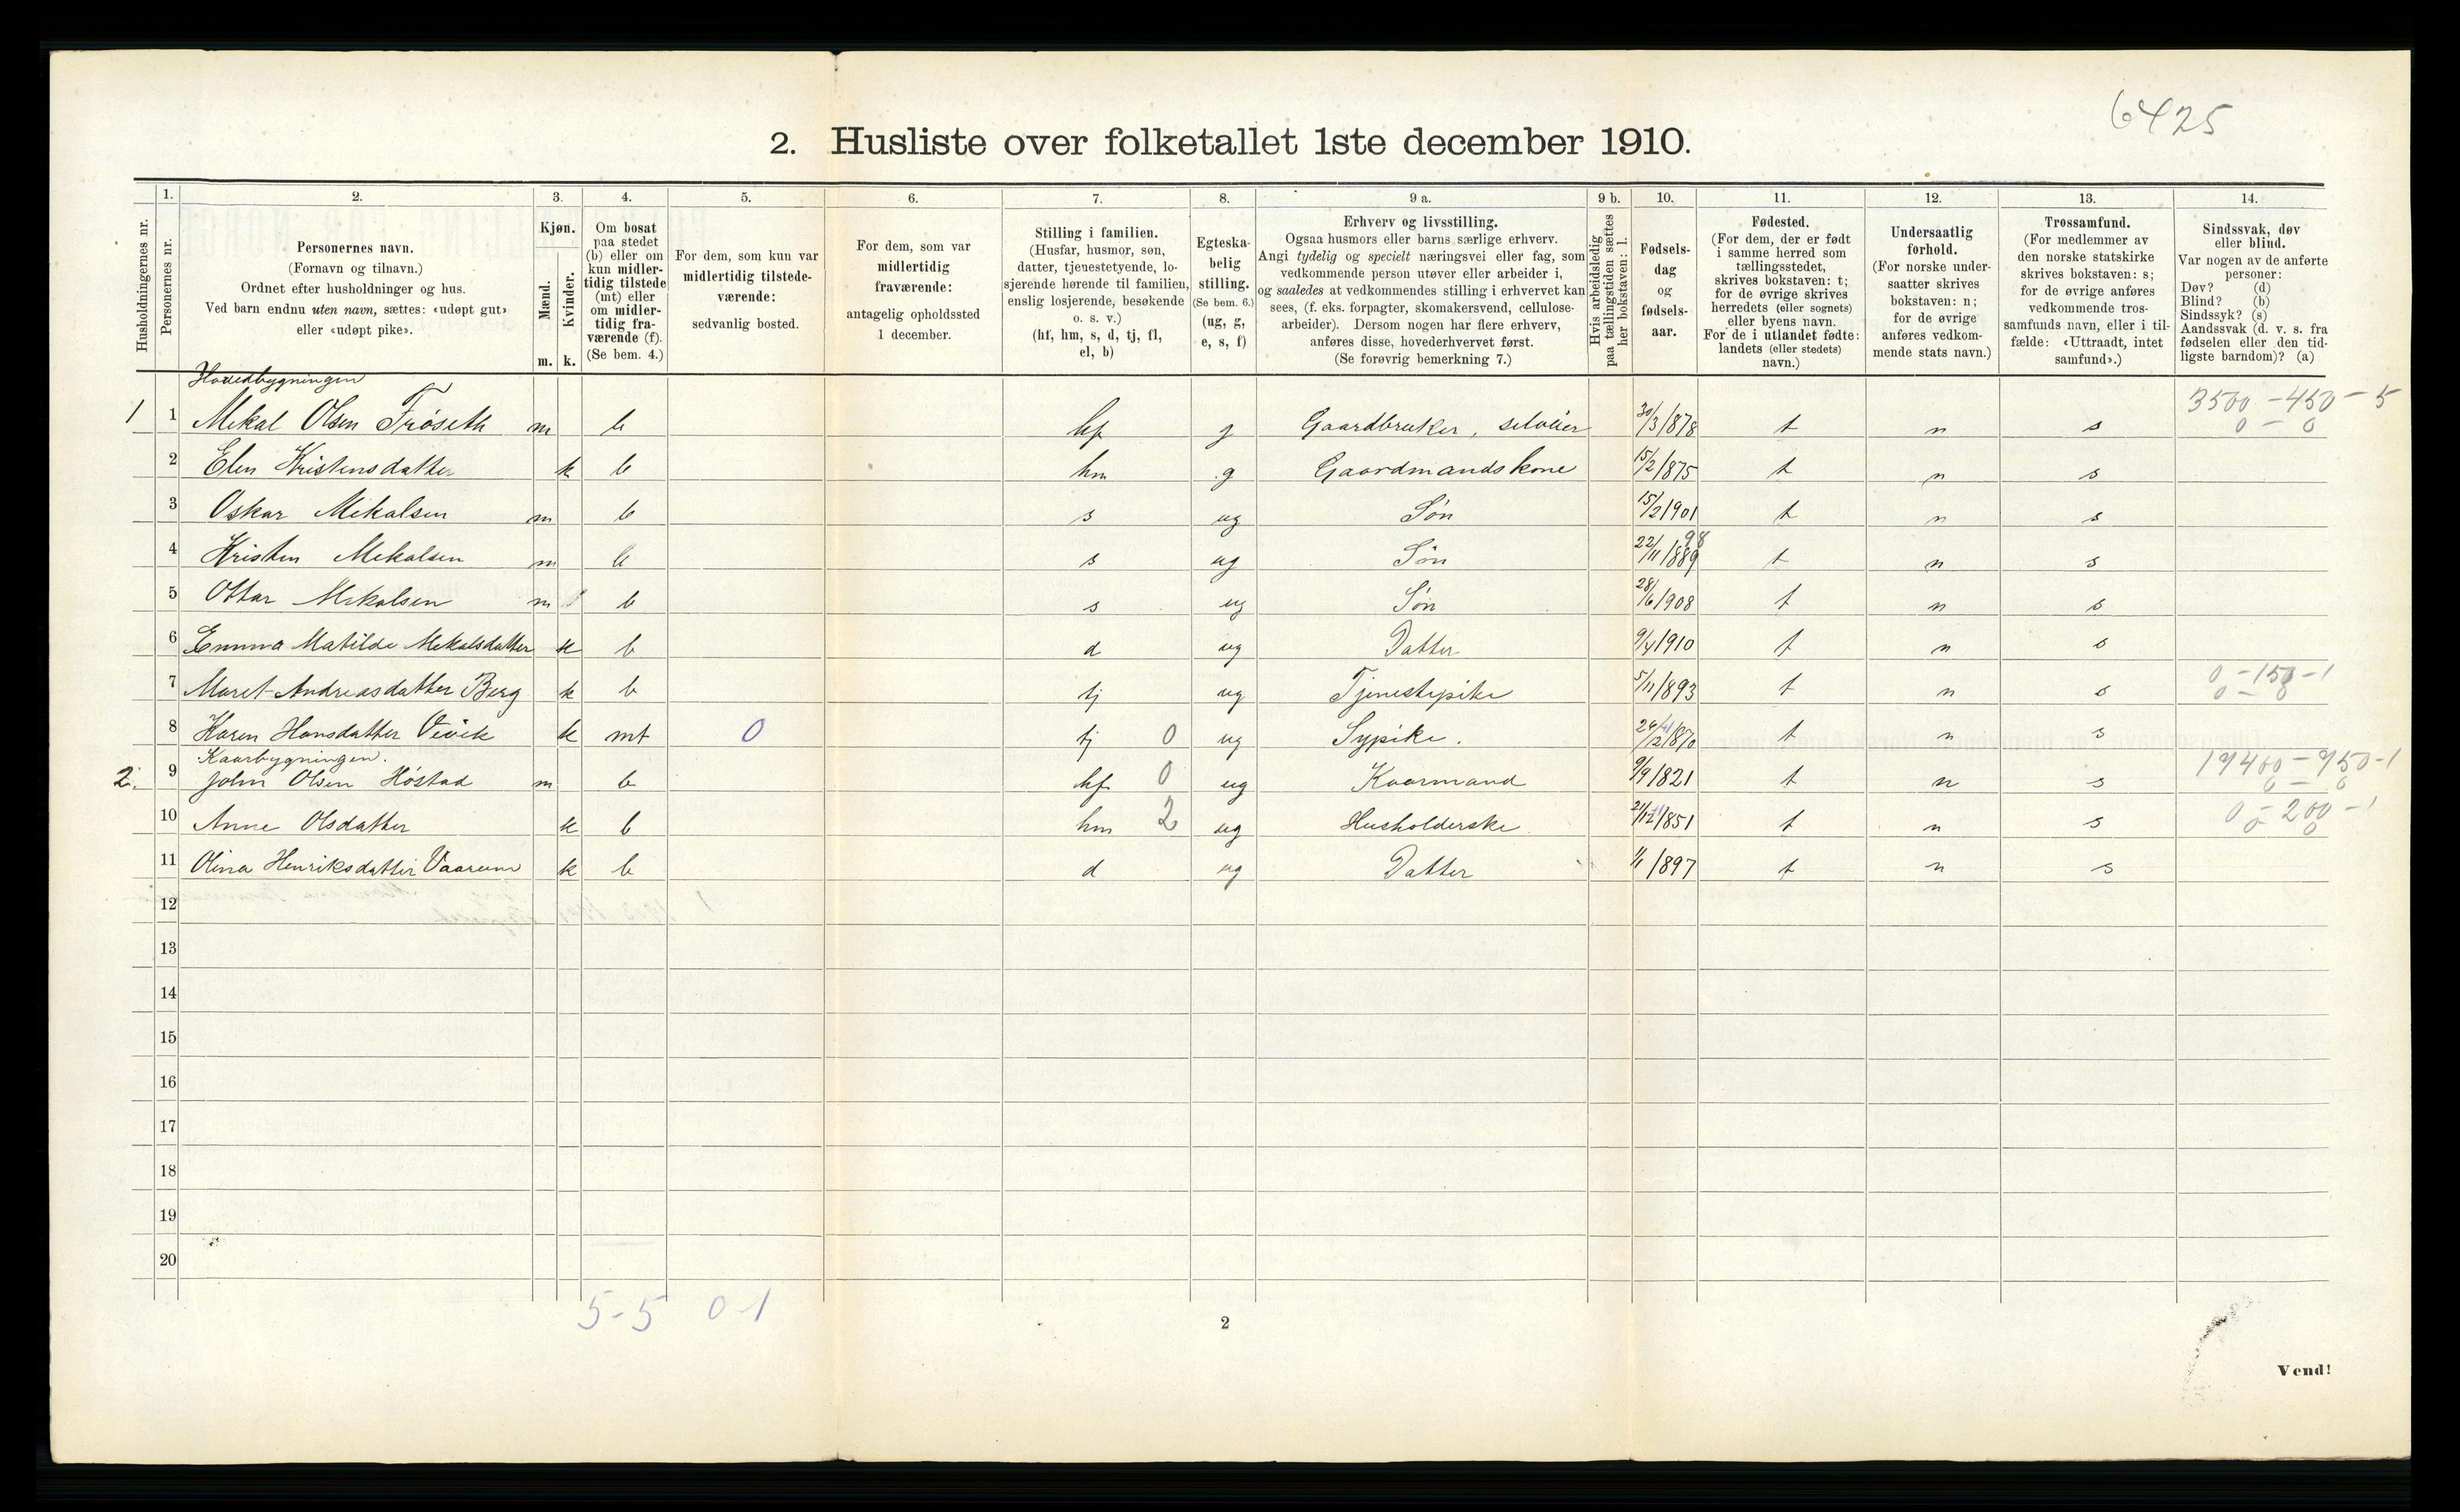 6425
2. Husliste over folketallet 1ste december 1910.
Husholdningernes nr.
1. Personernes nr.
2. Personernes navn.
(Fornavn og tilnavn.)
Ordnet efter husholdninger og hus.
Ved barn endnu uten navn, sættes: «udøpt gut»
eller «udøpt pike».
3. Kjøn.
Mænd. m.
Kvinder. k.
4. Om bosat
paa stedet
(b) eller om
kun midler-
tidig tilstede
(mt) eller
om midler-
tidig fra-
værende (f).
(Se bem. 4.)
5. For dem, som kun var
midlertidig tilstede-
værende:
sedvanlig bosted.
6. For dem, som var
midlertidig
fraværende:
antagelig opholdssted
1 december.
7. Stilling i familien.
(Husfar, husmor, søn,
datter, tjenestetyende, lo-
sjerende hørende til familien,
enslig losjerende, besøkende
o. s. v.)
(hf, hm, s, d, tj, fl,
el, b)
8. Egteska-
belig
stilling.
(Se bem. 6.)
(ug, g,
e, s, f)
9 a. Erhverv og livsstilling.
Ogsaa husmors eller barns særlige erhverv.
Angi tydelig og specielt næringsvei eller fag, som
vedkommende person utøver eller arbeider i,
og saaledes at vedkommendes stilling i erhvervet kan
sees, (f. eks. forpagter, skomakersvend, cellulose-
arbeider). Dersom nogen har flere erhverv,
anføres disse, hovederhvervet først.
(Se forøvrig bemerkning 7.)
9 b. Hvis arbeidsledig
paa tællingstiden sættes
her bokstaven: l.
10. Fødsels-
dag
og
fødsels-
aar.
11. Fødested.
(For dem, der er født
i samme herred som
tællingsstedet,
skrives bokstaven: t;
for de øvrige skrives
herredets (eller sognets)
eller byens navn.
For de i utlandet fødte:
landets (eller stedets)
navn.)
12. Undersaatlig
forhold.
(For norske under-
saatter skrives
bokstaven: n;
for de øvrige
anføres vedkom-
mende stats navn.)
13. Trossamfund.
(For medlemmer av
den norske statskirke
skrives bokstaven: s;
for de øvrige anføres
vedkommende tros-
samfunds navn, eller i til-
fælde: «Uttraadt, intet
samfund».)
14. Sindssvak, døv
eller blind.
Var nogen av de anførte
personer:
Døv? (d)
Blind? (b)
Sindssyk? (s)
Aandssvak (d. v. s. fra
fødselen eller den tid-
ligste barndom)? (a)
Hovedbygningen
1 1 Mekal Olsen Frøseth m b hf g Gaardbruker, selveier 30/3/878 t n s 3500 - 450 - 5
0 - 0
2 Elen Kristensdatter k b hm g Gaardmandskone 15/2/875 t n s
3 Oskar Mekalsen m b s ug Søn 15/2 1901 t n s
4 Kristen Mekalsen m b s ug Søn 22/11 1889 98 t n s
5 Ottar Mekalsen m b s ug Søn 28/6 1908 t n s
6 Emma Matilde Mekalsdatter k b d ug Datter 9/4 1910 t n s
7 Maret Andreasdatter Berg k b tj ug Tjenestepike 5/11/893 t n s 0 - 150 - 1
0 - 0
8 Karen Hansdatter Vevik k mt 0 tj 0 ug Sypike. 1870 t n s
Kaarbygningen.
2. 9 John Olsen Høstad m b hf 0 ug Kaarmand 9/9 1821 t n s 19400 - 950 - 1
0 - 0
10 Anne Olsdatter k b hm 2 ug Husholderske 21/12 1851 t n s 0 - 200 - 1
0 - 0
11 Olina Henriksdatter Vaarum k b d ug Datter 1/1 1897 t n s
12
13
14
15
16
17
18
19
20
5-5 0-1
2
Vend!